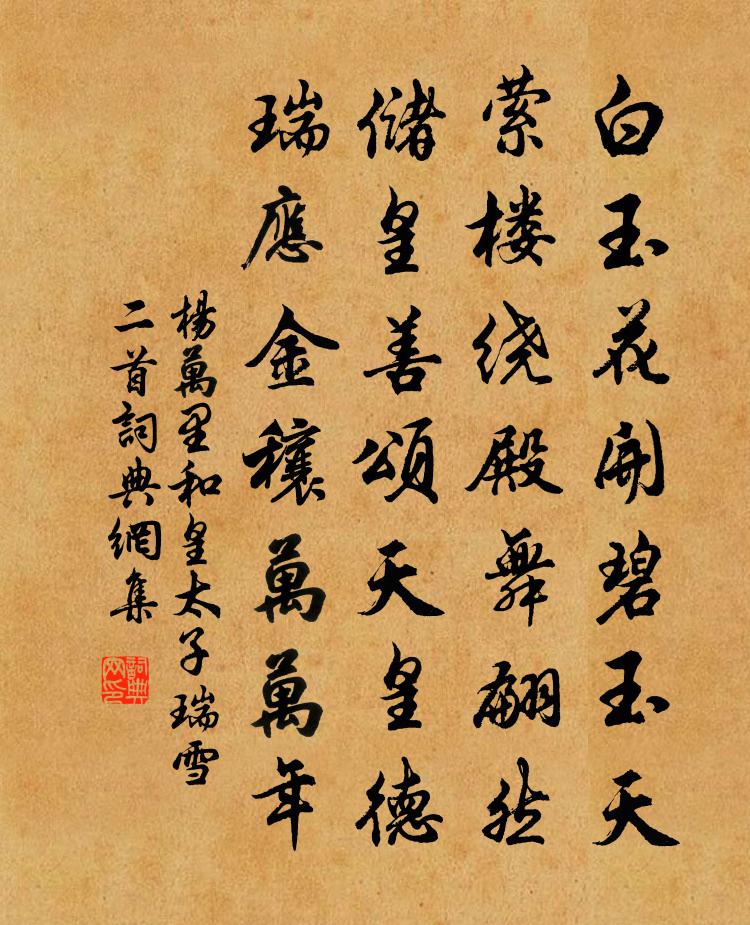 白玉花開碧玉天
萦楼绕殿舞翩然
储皇善頌天皇德
瑞應金穰萬萬年
楊萬里和皇太子瑞雪
二首詞典網集
詞典网印